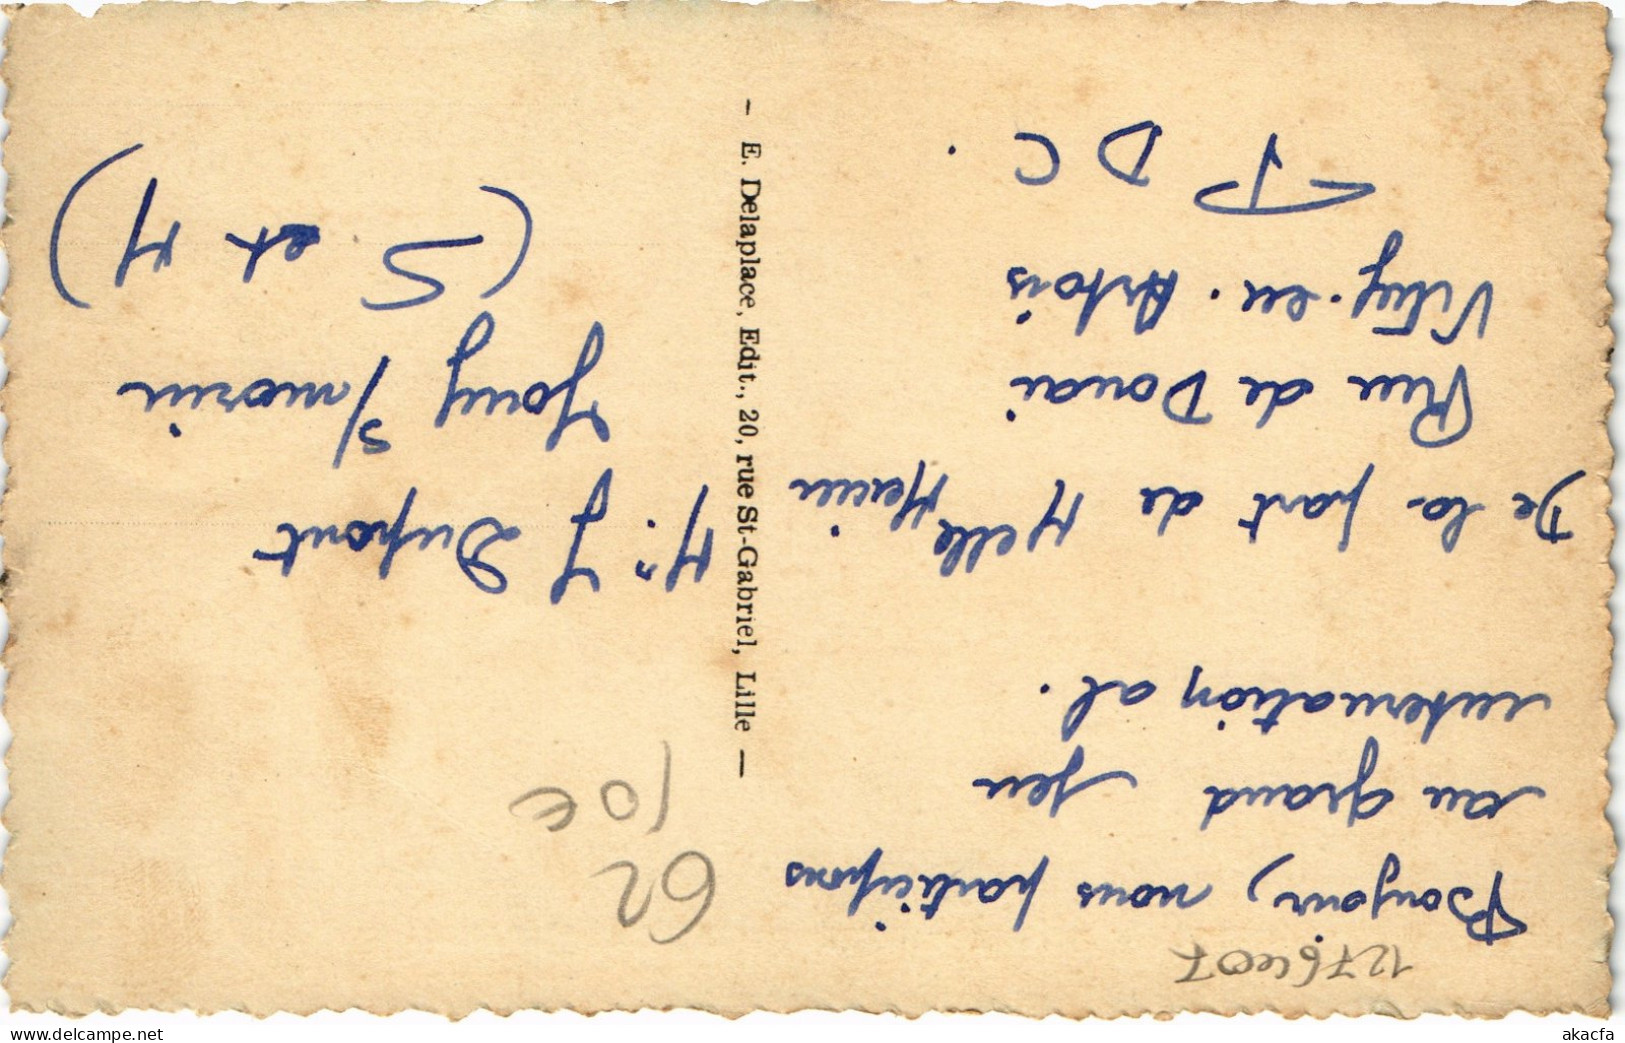 Bonjour, nous participons
au grand jeu
international.
De la part de Melle
Rue de Douai
Vitry-en-Artois
P D C.
Mr J Dupont
Jouy s/morin
(S et M)
- E. Delaplace, Edit., 20, rue St-Gabriel, Lille -
62
10 €
delcampe.net
akacfa